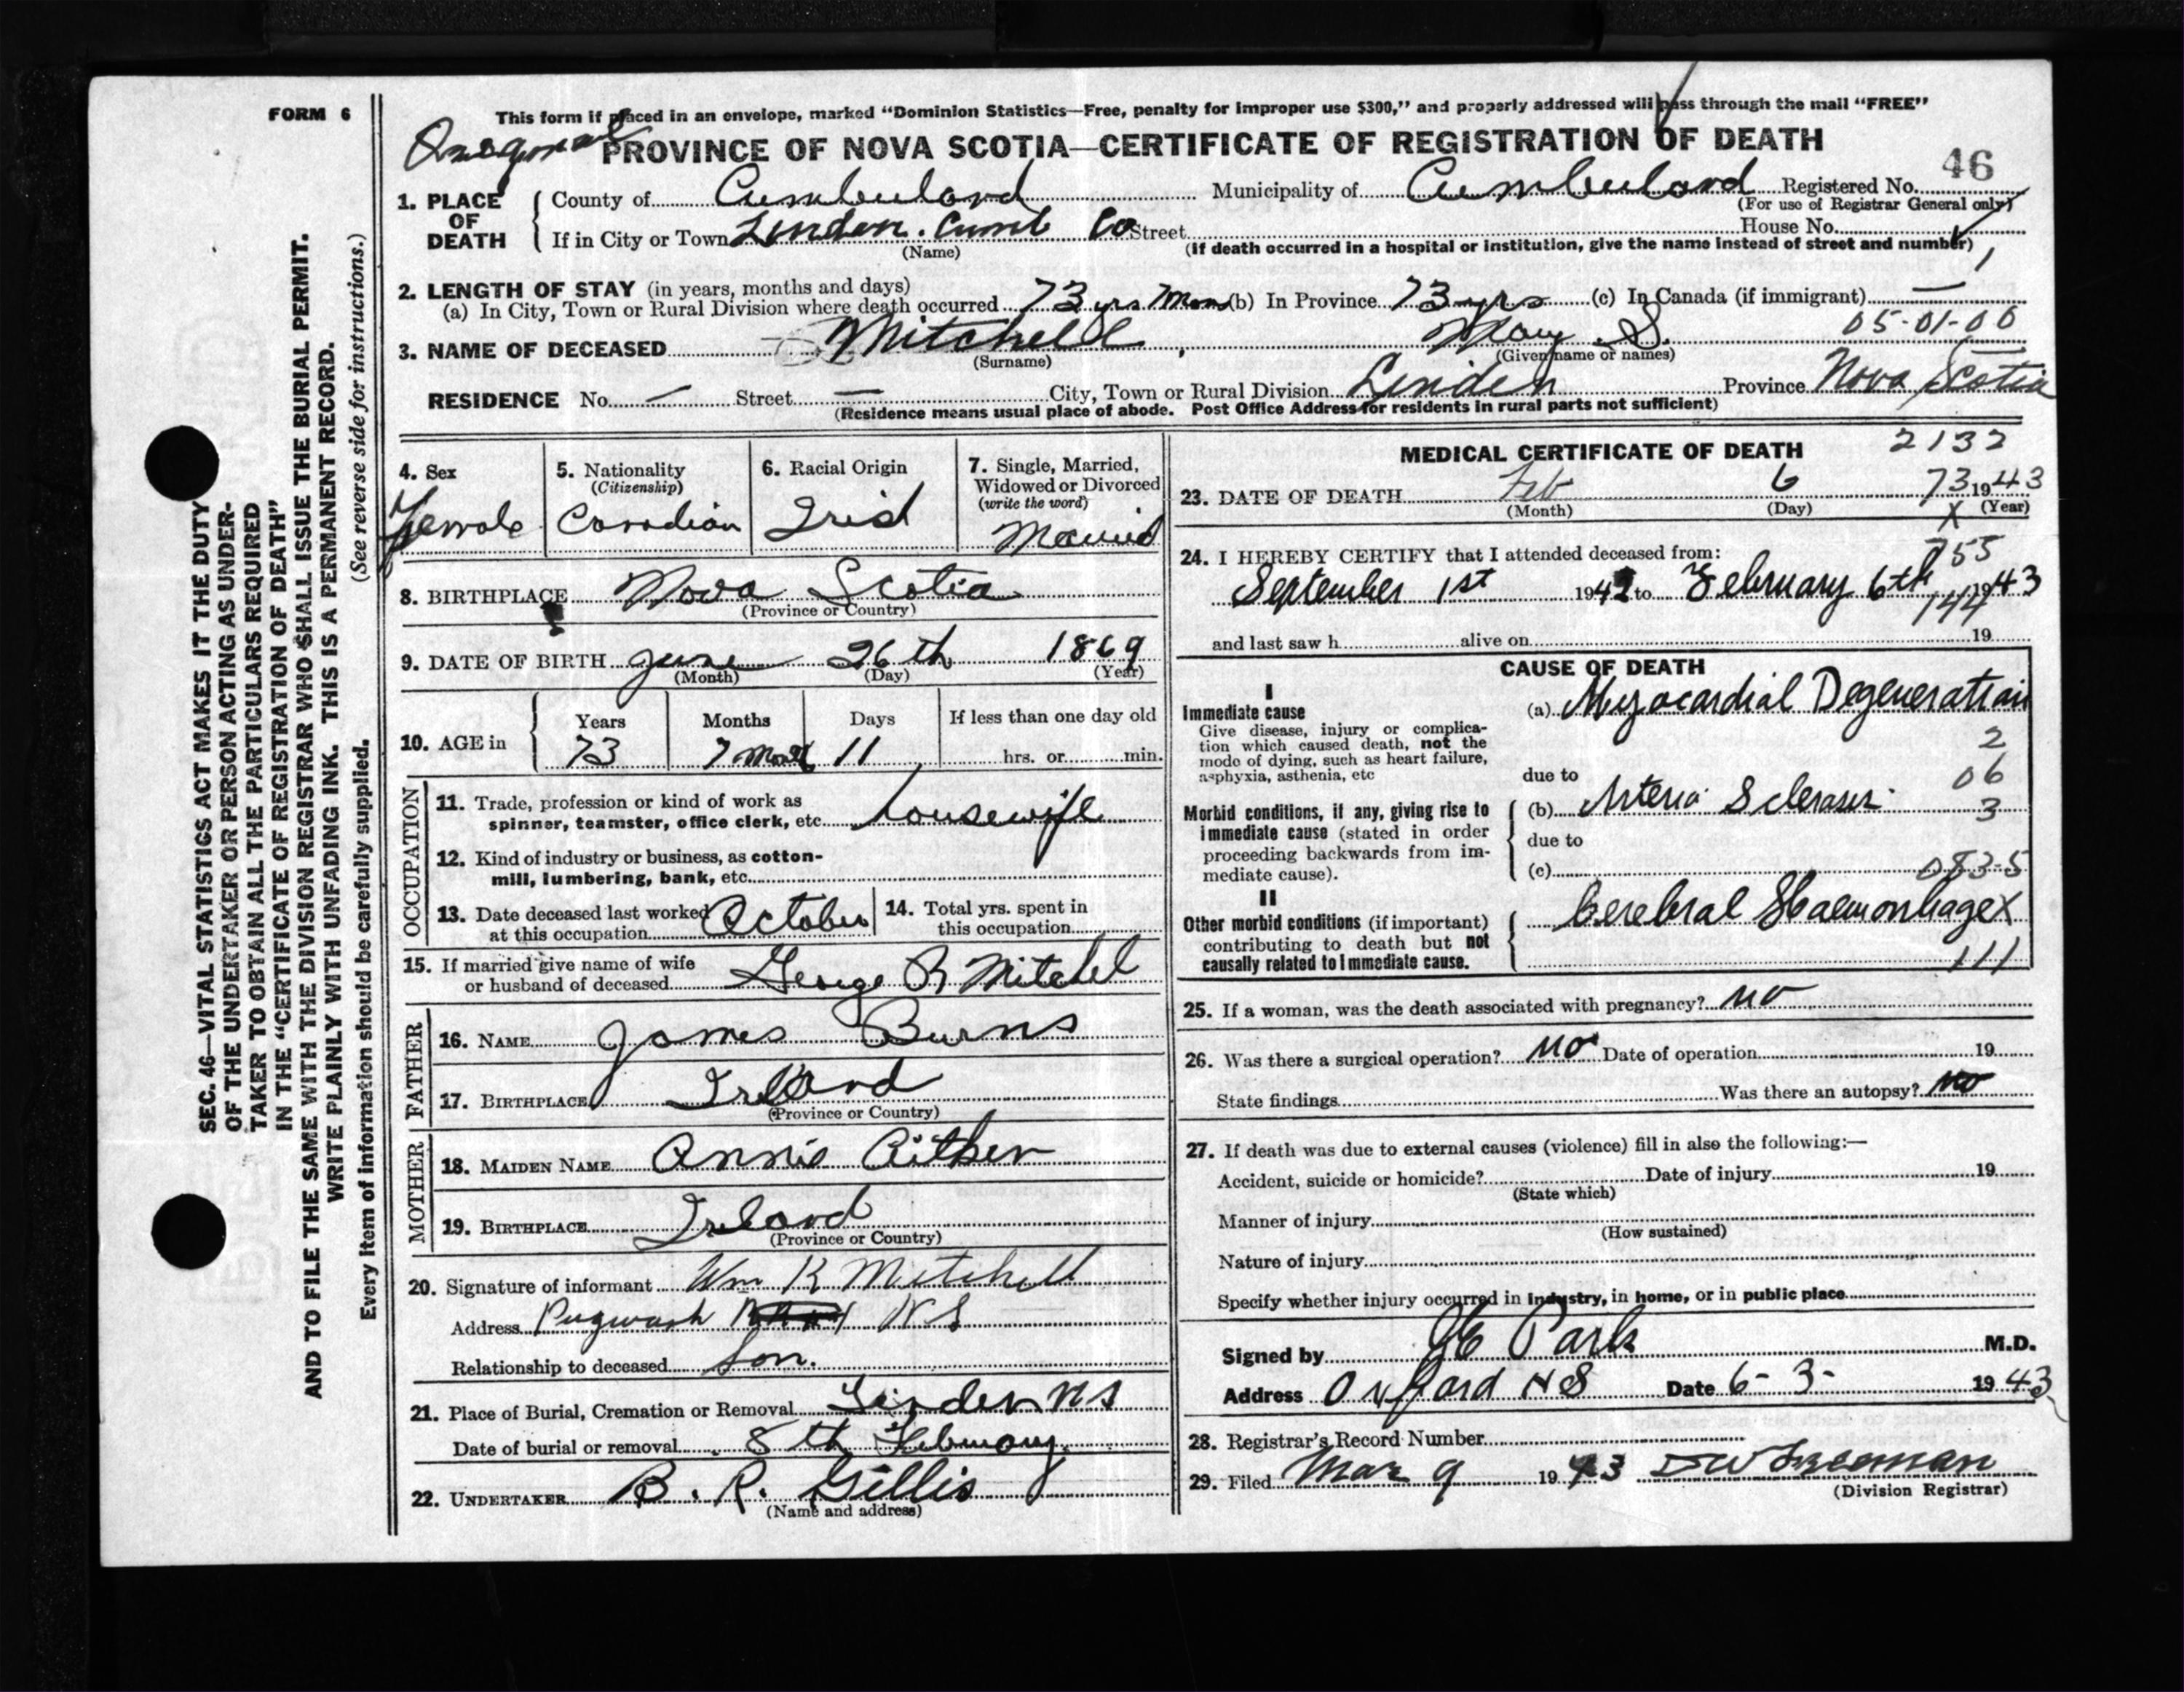 FORM 6
This form if placed in an envelope, marked “Dominion Statistics—Free, penalty for improper use $300,” and properly addressed will pass through the mail “FREE”
PROVINCE OF NOVA SCOTIA—CERTIFICATE OF REGISTRATION OF DEATH
46
1. PLACE OF DEATH
County of Cumberland Municipality of Cumberland Registered No.
(For use of Registrar General only)
If in City or Town Linden. Cumb Co Street House No.
(Name) (If death occurred in a hospital or institution, give the name instead of street and number)
1
2. LENGTH OF STAY (in years, months and days)
(a) In City, Town or Rural Division where death occurred 73 yrs 7 Mon (b) In Province 73 yrs (c) In Canada (if immigrant) —
05-01-00
3. NAME OF DECEASED Mitchell, Mary S.
(Surname) (Given name or names)
RESIDENCE No. — Street — City, Town or Rural Division Linden Province Nova Scotia
(Residence means usual place of abode. Post Office Address for residents in rural parts not sufficient)
SEC. 46—VITAL STATISTICS ACT MAKES IT THE DUTY
OF THE UNDERTAKER OR PERSON ACTING AS UNDER-
TAKER TO OBTAIN ALL THE PARTICULARS REQUIRED
IN THE “CERTIFICATE OF REGISTRATION OF DEATH”
AND TO FILE THE SAME WITH THE DIVISION REGISTRAR WHO SHALL ISSUE THE BURIAL PERMIT.
WRITE PLAINLY WITH UNFADING INK. THIS IS A PERMANENT RECORD.
Every item of information should be carefully supplied. (See reverse side for instructions.)
4. Sex
Female
5. Nationality
(Citizenship)
Canadian
6. Racial Origin
Irish
7. Single, Married,
Widowed or Divorced
(write the word)
Married
8. BIRTHPLACE Nova Scotia
(Province or Country)
9. DATE OF BIRTH June 26th 1869
(Month) (Day) (Year)
10. AGE in
Years Months Days If less than one day old
73 7 11 hrs. or min.
OCCUPATION
11. Trade, profession or kind of work as
spinner, teamster, office clerk, etc. housewife
12. Kind of industry or business, as cotton-
mill, lumbering, bank, etc.
13. Date deceased last worked
at this occupation October
14. Total yrs. spent in
this occupation
15. If married give name of wife
or husband of deceased George R Mitchel
FATHER
16. NAME James Burns
17. BIRTHPLACE Ireland
(Province or Country)
MOTHER
18. MAIDEN NAME Annie
19. BIRTHPLACE Ireland
(Province or Country)
20. Signature of informant Wm K Mitchell
Address Pugwash N S
Relationship to deceased Son.
21. Place of Burial, Cremation or Removal Linden N S
Date of burial or removal 8th February.
22. UNDERTAKER B. R. Gillis
(Name and address)
MEDICAL CERTIFICATE OF DEATH 2132
23. DATE OF DEATH Feb 6 73 1943
(Month) (Day) (Year)
X
24. I HEREBY CERTIFY that I attended deceased from:
September 1st 1942 to February 6th 1943
144
and last saw h alive on 19
CAUSE OF DEATH
I
Immediate cause
Give disease, injury or complica-
tion which caused death, not the
mode of dying, such as heart failure,
asphyxia, asthenia, etc
(a) Myocardial Degeneration
2
06
3
due to
Morbid conditions, if any, giving rise to
immediate cause (stated in order
proceeding backwards from im-
mediate cause).
(b) Arterio Sclerosis.
due to
(c) 083-5
II
Other morbid conditions (if important)
contributing to death but not
causally related to immediate cause.
Cerebral Haemorrhage X
111
25. If a woman, was the death associated with pregnancy? no
26. Was there a surgical operation? no Date of operation 19
State findings Was there an autopsy? no
27. If death was due to external causes (violence) fill in also the following:—
Accident, suicide or homicide? Date of injury 19
(State which)
Manner of injury
(How sustained)
Nature of injury
Specify whether injury occurred in industry, in home, or in public place
Signed by Park M.D.
Address Oxford N S Date 6-3- 1943
28. Registrar's Record Number
29. Filed Mar 9 1943
(Division Registrar)